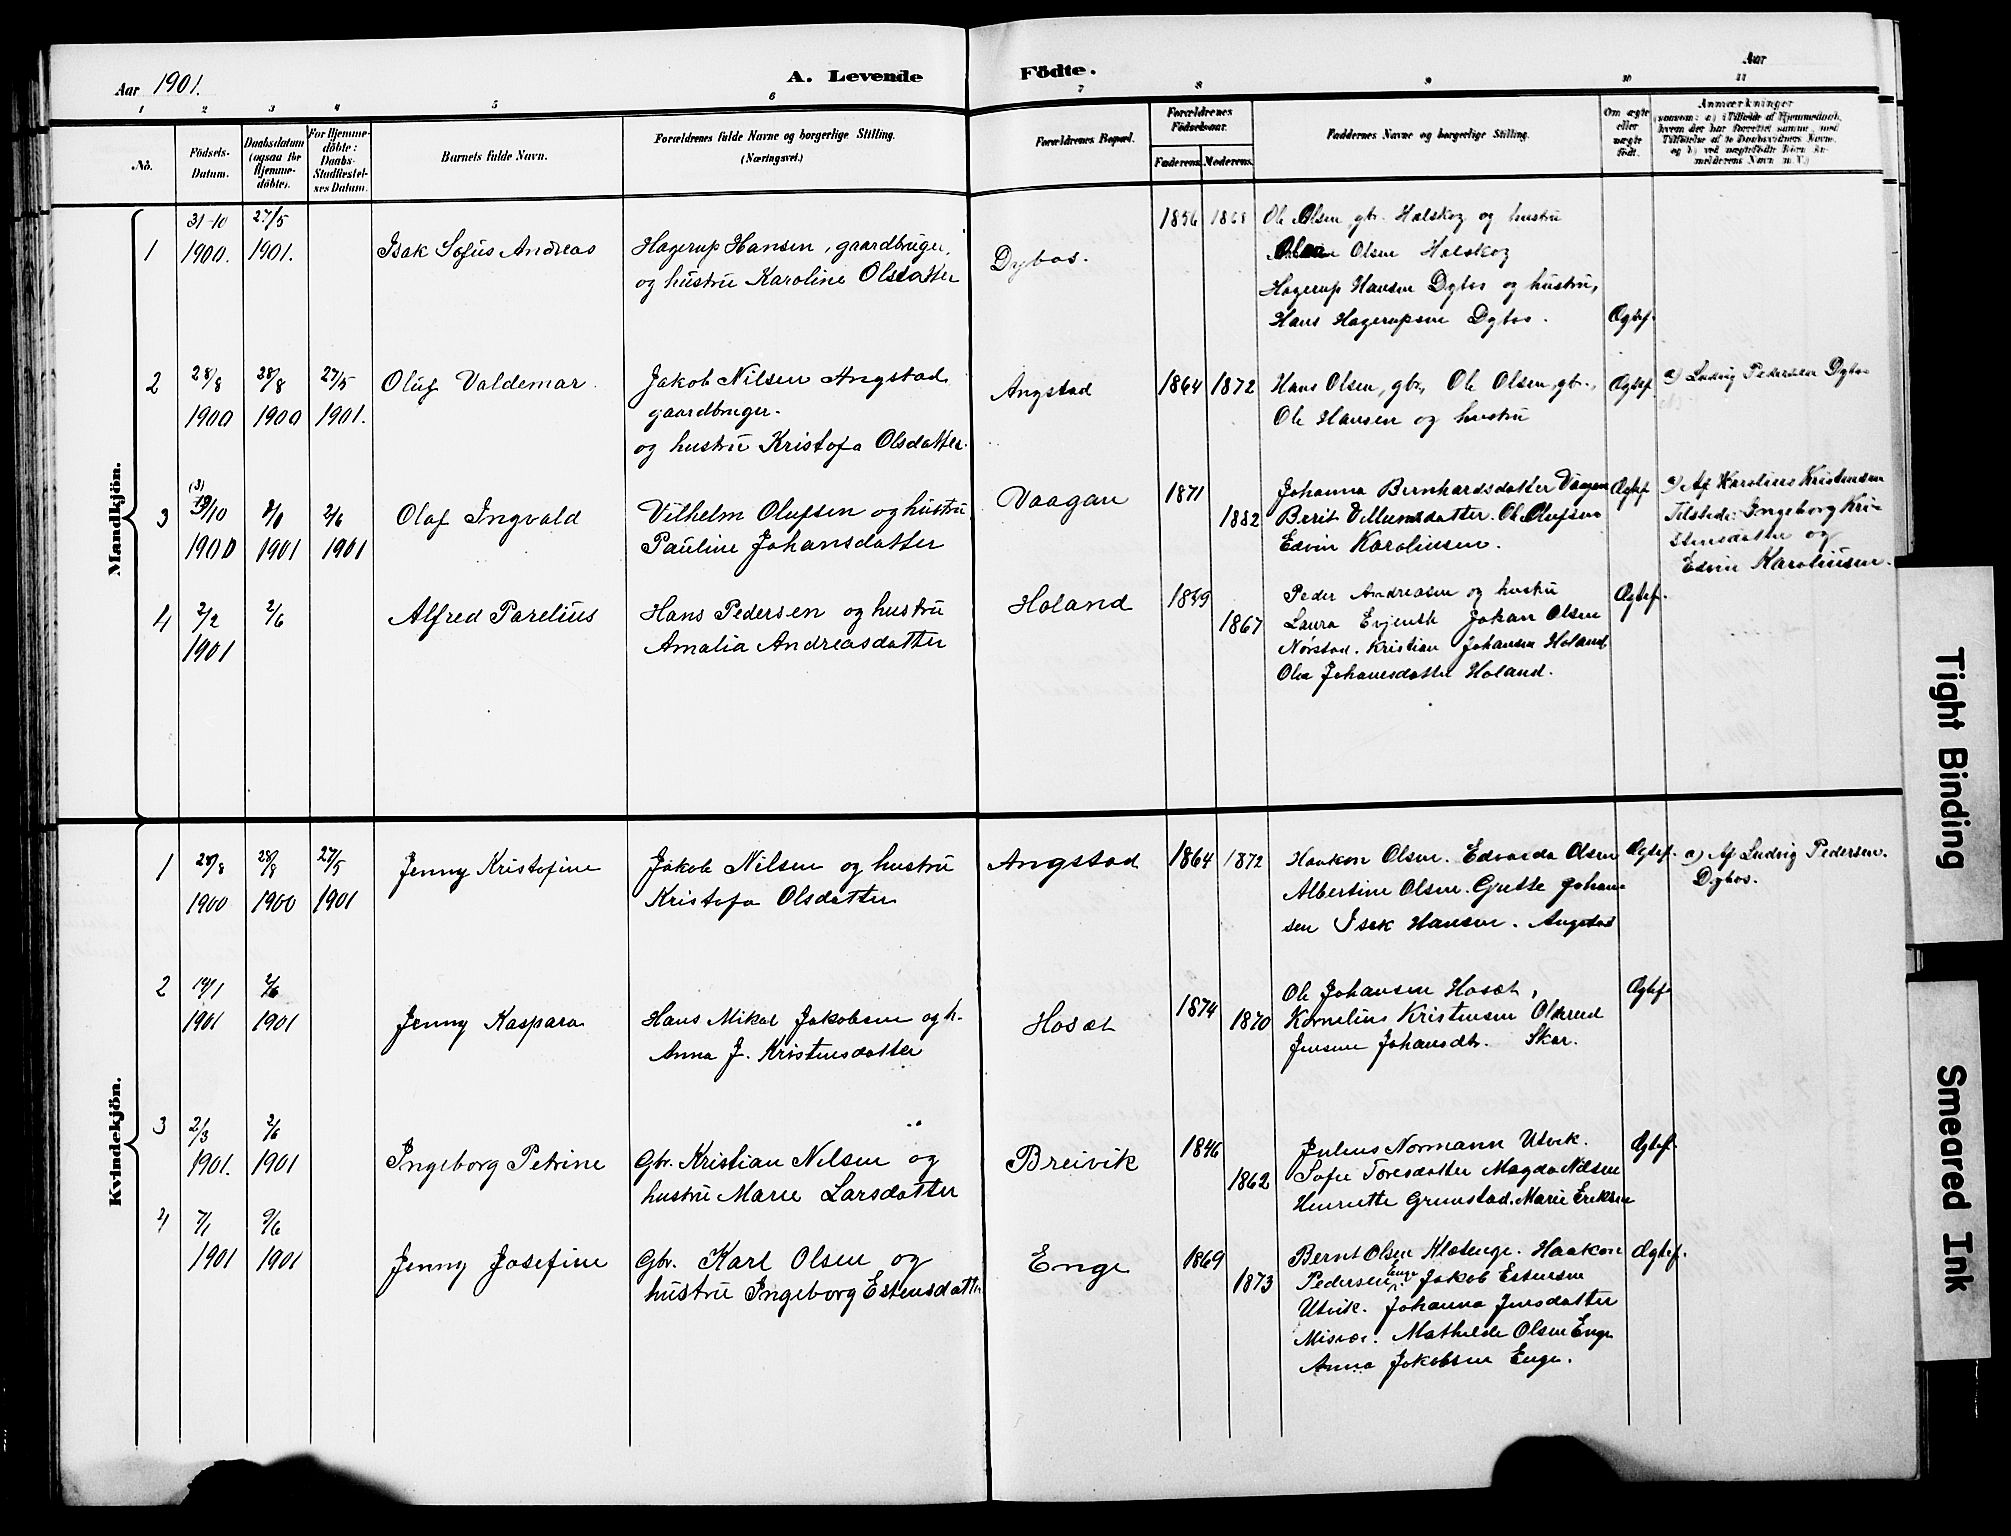 Aar 1901.
A. Levende Födte.
Aar
1 2 3 4 5 6 7 8 9 10 11
No.
Födsels-Datum.
Daabsdatum (ogsaa for Hjemme-döbte).
For Hjemme-döbte: Daabs-Stadfæstel-ses Datum.
Barnets fulde Navn.
Forældrenes fulde Navne og borgerlige Stilling.
(Næringsvei.)
Forældrenes Bopæl.
Forældrenes Födselsaar.
Faderens. Moderens.
Faddernes Navne og borgerlige Stilling.
Om ægte eller uægte födt.
Anmærkninger
Mandkjön.
1
31-10 1900.
27/5 1901.
Isak Sofus Andreas
Hagerup Hansen, gaardbruger,
og hustru Karoline Olsdatter
Dybos.
1856 1868
Ole Olsen gbr. Halskog og hustru
Olsen Halskog
Hagerup Hansen Dybos og hustru,
Hans Hagerupsen Dybos.
Ægtef.
2
28/8 1900
28/8 1900
27/5 1901.
Oluf Valdemar.
Jakob Nilsen Angstad
gaardbruger.
og hustru Kristofa Olsdatter.
Angstad
1864 1872
Hans Olsen, gbr, Ole Olsen, gbr.,
Ole Hansen og hustru
Ægtef.
a) Ludvig Pedersen Dybos
3
(3) /10 1900
1901
2/6 1901
Olaf Ingvald
Vilhelm Olufsen og hustru
Pauline Johansdatter
Vaagan
1871
1882
Johanna Bernhardsdatter Vaagan
Berit Villumsdatter. Ole Olufsen
Edvin Karoliusen.
Ægtef.
a) Af Karolius Kristensen
Tilstede: Ingeborg Kri-
stensdatter og
Edvin Karoliusen.
4
2/2 1901
2/6
Alfred Parelius
Hans Pedersen og hustru
Amalia Andreasdatter
Holand
1867
Peder Andreasen og hustru
Laura Evjenth Johan Olsen
Nørstad. Kristian Johansen Holand.
Olea Johansdatter Holand.
Ægtef.
Kvindekjön.
1
28/8 1900
28/8 1900
27/5 1901
Jenny Kristofine
Jakob Nilsen og hustru
Kristofa Olsdatter
Angstad
1864 1872
Haakon Olsen. Edvarda Olsen
Albertine Olsen. Grette Johan-
sen Isak Hansen. Angstad
Ægtef.
a) Af Ludvig Pedersen.
Dybos.
2
19/1 1901
2/6 1901
Jenny Kaspara
Hans Mikal Jakobsen og h.
Anna J. Kristensdatter
Hosæt
1874
1870
Ole Johansen Hosæt,
Kornelius Kristensen
Jensine Johansdtr. Skar.
Ægtef.
3
2/3 1901.
2/6 1901
Ingeborg Petrine
Gbr. Kristian Nilsen og
hustru Marie Larsdatter
Breivik
1846
1862
Julius Normann Utvik.
Sofie Toresdatter Magda Nilsen
Henriette Grimstad. Marie Eriksen
Ægtef.
4
7/1 1901
9/6 1901
Jenny Josefine
Gbr. Karl Olsen og
hustru Ingeborg Estensdatter
Enge
1869
1873
Bernt Olsen Klætenge. Haakon
Pedersen Enge Jakob Estensen
Utvik. Johanna Jensdatter
Misvær. Mathilde Olsen Enge
Anna Jakobsen Enge.
Ægtef.
Tight Binding
Smeared Ink